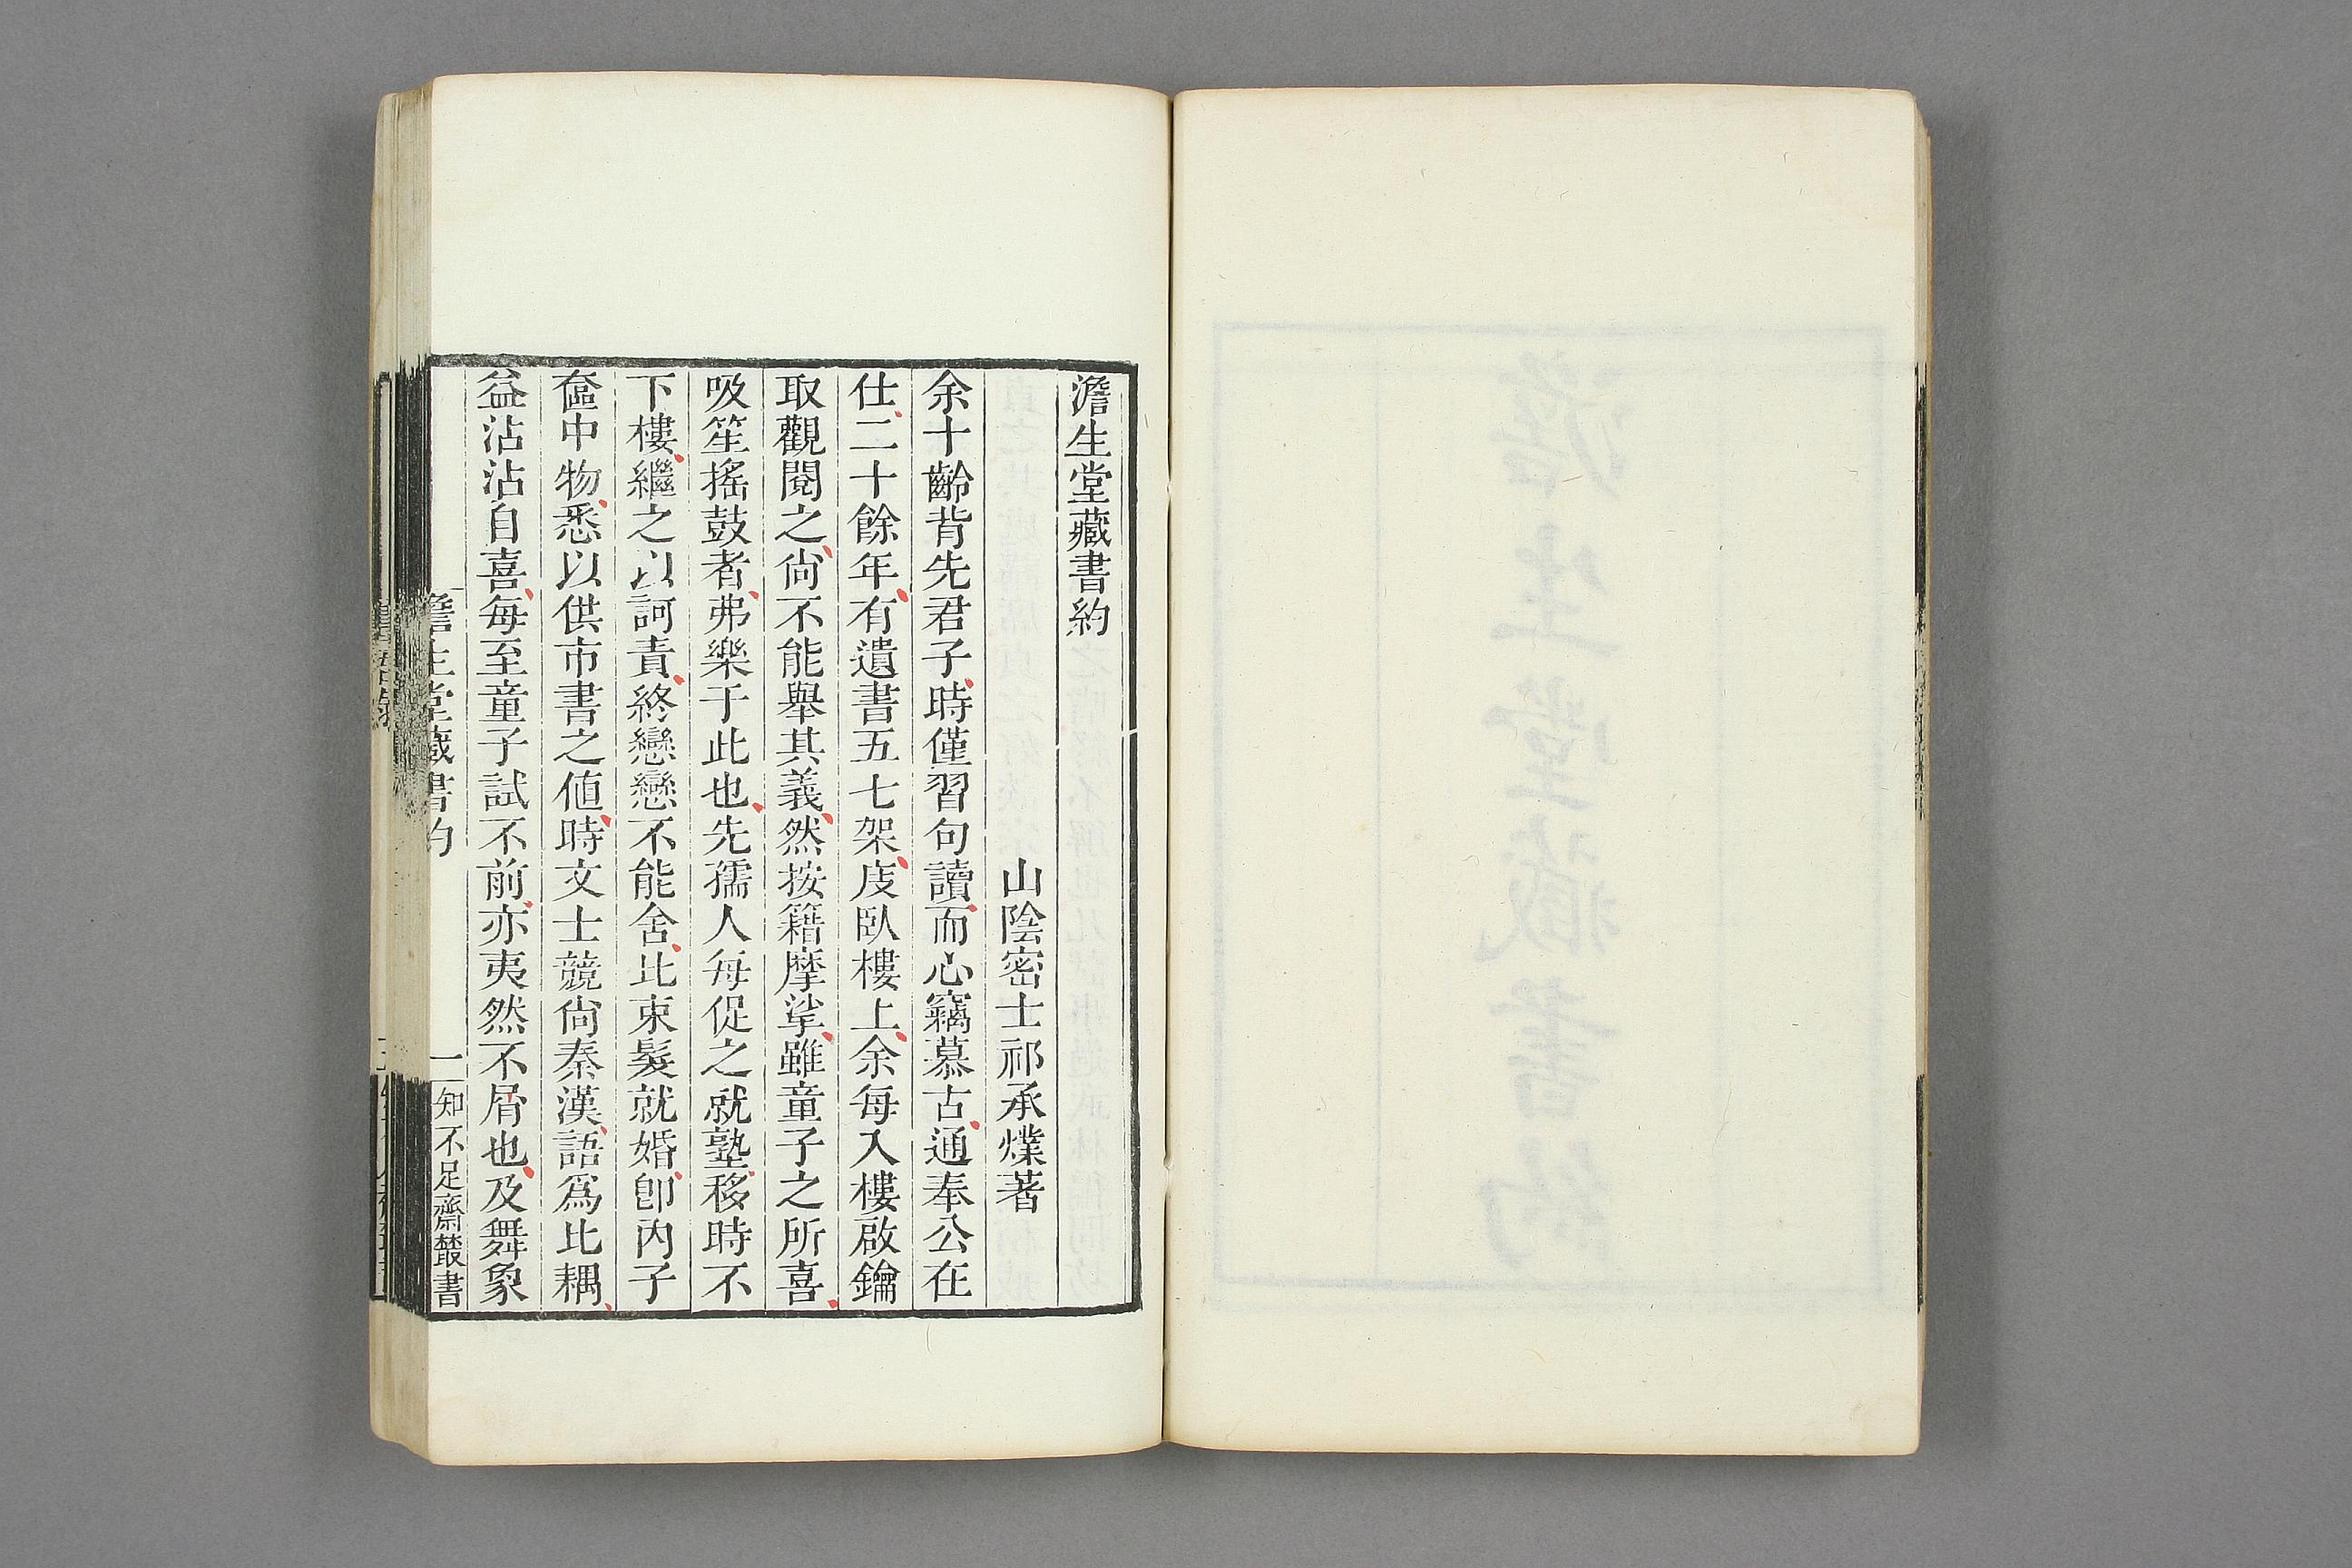 澹生堂藏書約
山陰密士祁承㸁著
余十齡背先君子時僅習句讀而心竊慕古通奉公在
仕二十餘年有遺書五七架庋臥樓上余每入樓啟鑰
取觀閱之尙不能舉其義然按籍摩挲雖童子之所喜
吸笙搖鼓者弗樂于此也先孺人每促之就塾移時不
下樓繼之以訶責終戀戀不能舍比束髮就婚卽內子
奩中物悉以供市書之值時文士競尙秦漢語爲比耦
益沾沾自喜每至童子試不前亦夷然不屑也及舞象
澹生堂藏書約
一
知不足齋叢書